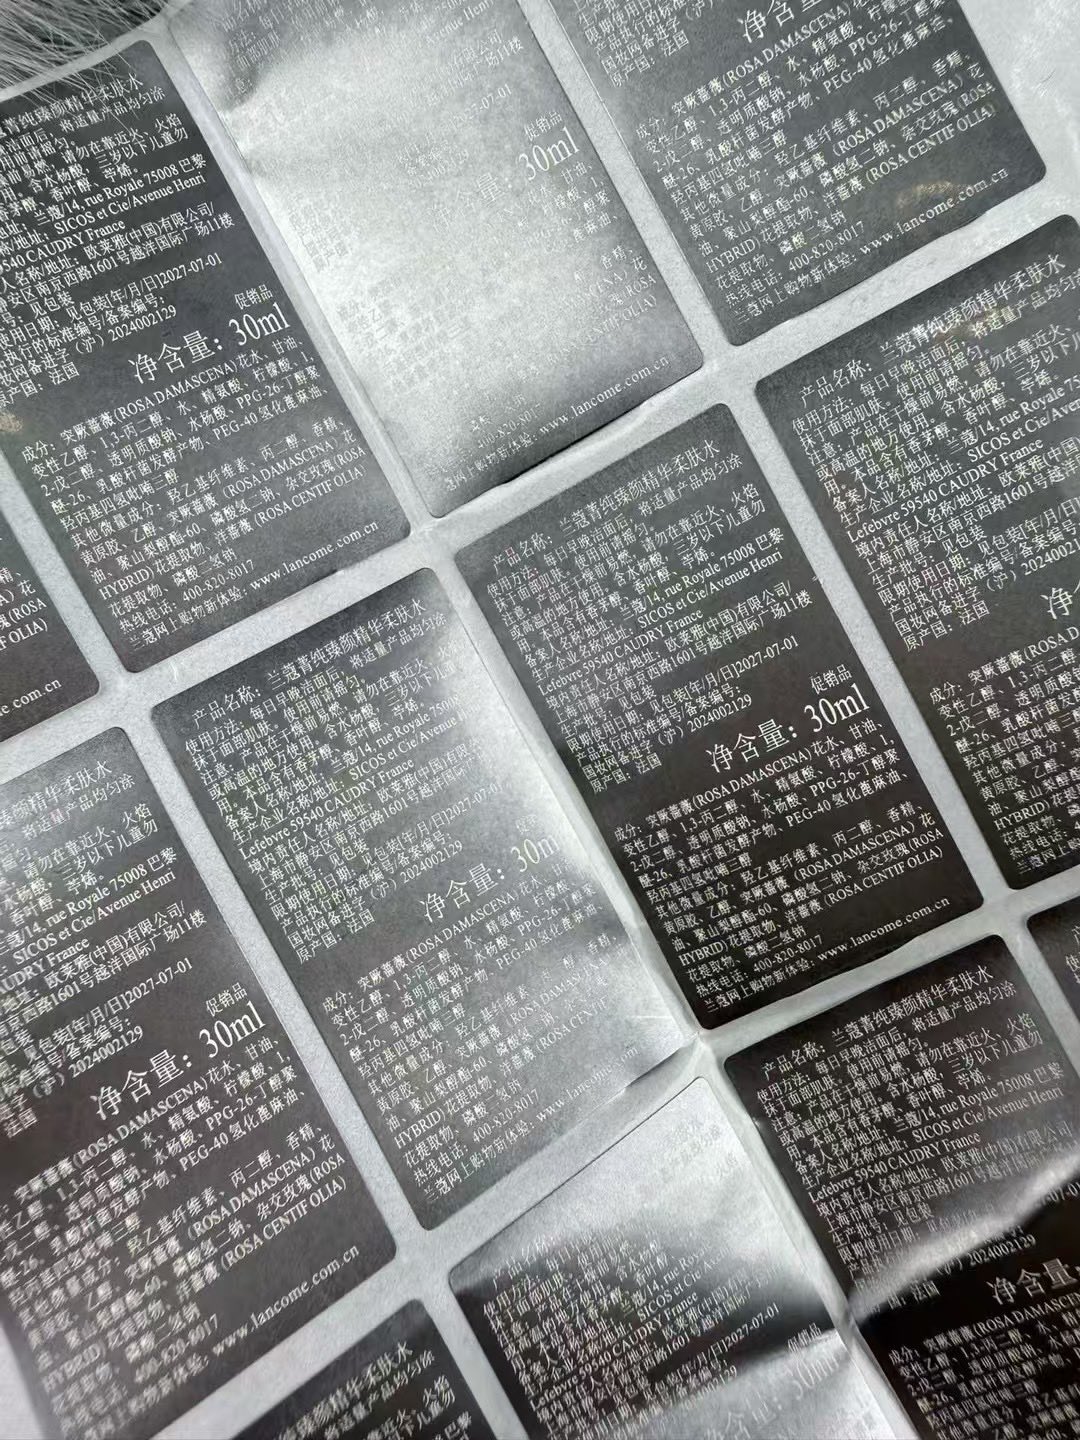 产品名称：兰蔻菁纯臻颜精华柔肤水
使用方法：每日早晚洁面后，将适量产品均匀涂
抹于面部肌肤，使用前请摇匀。
注意：产品在干燥前易燃，请勿在靠近火、火焰
或高温的地方使用。含水杨酸，三岁以下儿童勿
用。本品含有香茅醇、香叶醇、苧烯。
备案人名称/地址：兰蔻/14, rue Royale 75008 巴黎
生产企业名称/地址：SICOS et Cie/Avenue Henri
Lefebvre 59540 CAUDRY France
境内责任人名称/地址：欧莱雅(中国)有限公司/
上海市静安区南京西路1601号越洋国际广场11楼
生产批号：见包装
限期使用日期：见包装[年/月/日]2027-07-01
产品执行的标准编号/备案编号：
国妆网备进字（沪）2024002129
原产国：法国
促销品
净含量：30ml
成分：突厥蔷薇(ROSA DAMASCENA)花水、甘油、
变性乙醇、1,3-丙二醇、水、精氨酸、柠檬酸、1,
2-戊二醇、透明质酸钠、水杨酸、PPG-26-丁醇聚
醚-26、乳酸杆菌发酵产物、PEG-40 氢化蓖麻油、
羟丙基四氢吡喃三醇
其他微量成分：羟乙基纤维素、丙二醇、香精、
黄原胶、乙醇、突厥蔷薇 (ROSA DAMASCENA) 花
油、聚山梨醇酯-60、磷酸氢二钠、杂交玫瑰(ROSA
HYBRID)花提取物、洋蔷薇 (ROSA CENTIFOLIA)
花提取物、磷酸二氢钠
热线电话：400-820-8017
兰蔻网上购物新体验：www.lancome.com.cn